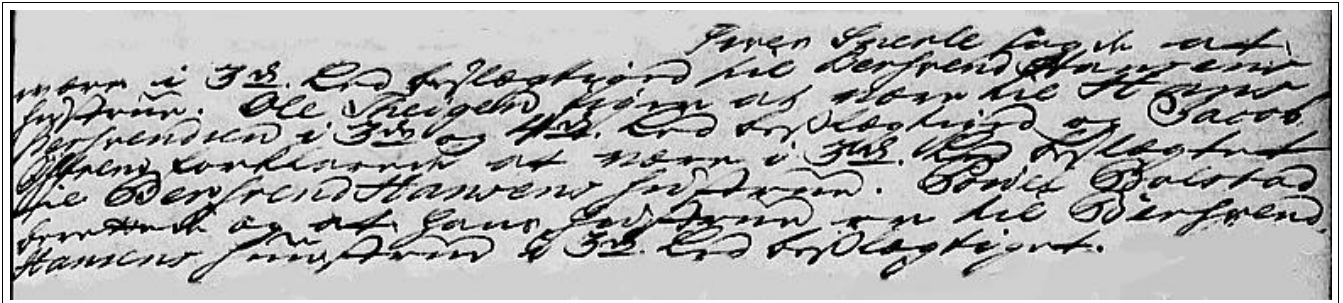 Iver Snerle sagde at
være i 3die Led besslægtiged til Berhrend Hansens
hustrue. Ole Skeigeln siger at være til Hans
Berhrendsen i 3die og 4de Led besslægtiged og Jacob
forklarede at være i 3die Led besslægtet
til Berhrend Hansens hustrue. Povel Bolstad
berettede og at hans hustrue er til Berhrend
Hansens huustrue i 3die Led besslægtiget.